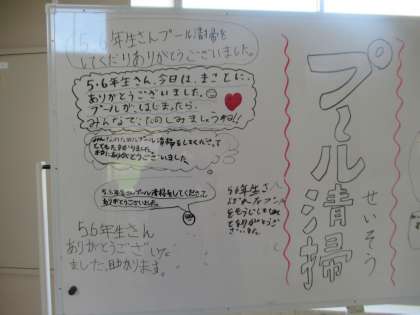 5・6年生さんプール清掃を
してくださりありがとうございました。
5・6年生さん、今日は、まことに、
ありがとうございました。
プールが、はじまったら、
みんなで、たのしみましょうね!!
プール清掃をしてくださって
とてもたすかりました。
本当にありがとうございました。
5・6年生さんプール清掃をしてくださって
ありがとうございました。
5.6年生さん
ありがとうござい
ました、助かります。
5.6年生さん
プール清掃
せいそう